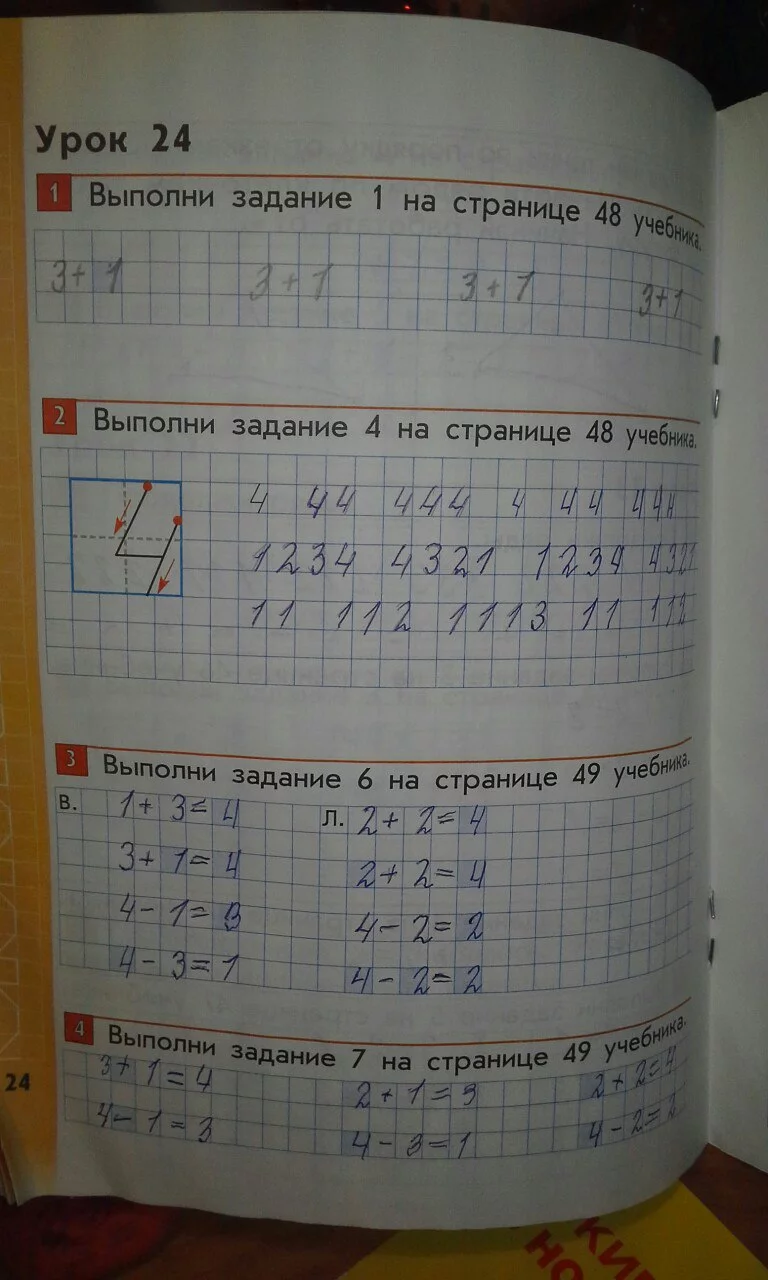 Урок 24
1 Выполни задание 1 на странице 48 учебника.
3+1 3+1 3+1 3+1
2 Выполни задание 4 на странице 48 учебника.
4 44 444 4 44 444
1234 4321 1234 4321
11 112 1113 11 112
3 Выполни задание 6 на странице 49 учебника.
В. 1+3=4 Л. 2+2=4
3+1=4 2+2=4
4-1=3 4-2=2
4-3=1 4-2=2
4 Выполни задание 7 на странице 49 учебника.
3+1=4 2+1=3 2+2=4
4-1=3 4-3=1 4-2=2
24
КИ
НО